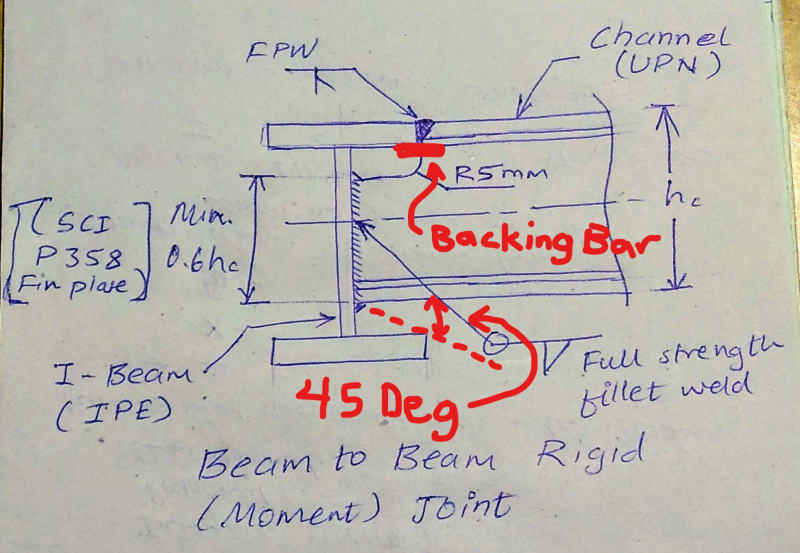 FPW
Channel
(UPN)
R5mm
hc
Backing Bar
[SCI
P358
Fin plate]
Min.
0.6hc
I-Beam
(IPE)
45 Deg
Full strength
fillet weld
Beam to Beam Rigid
(Moment) Joint